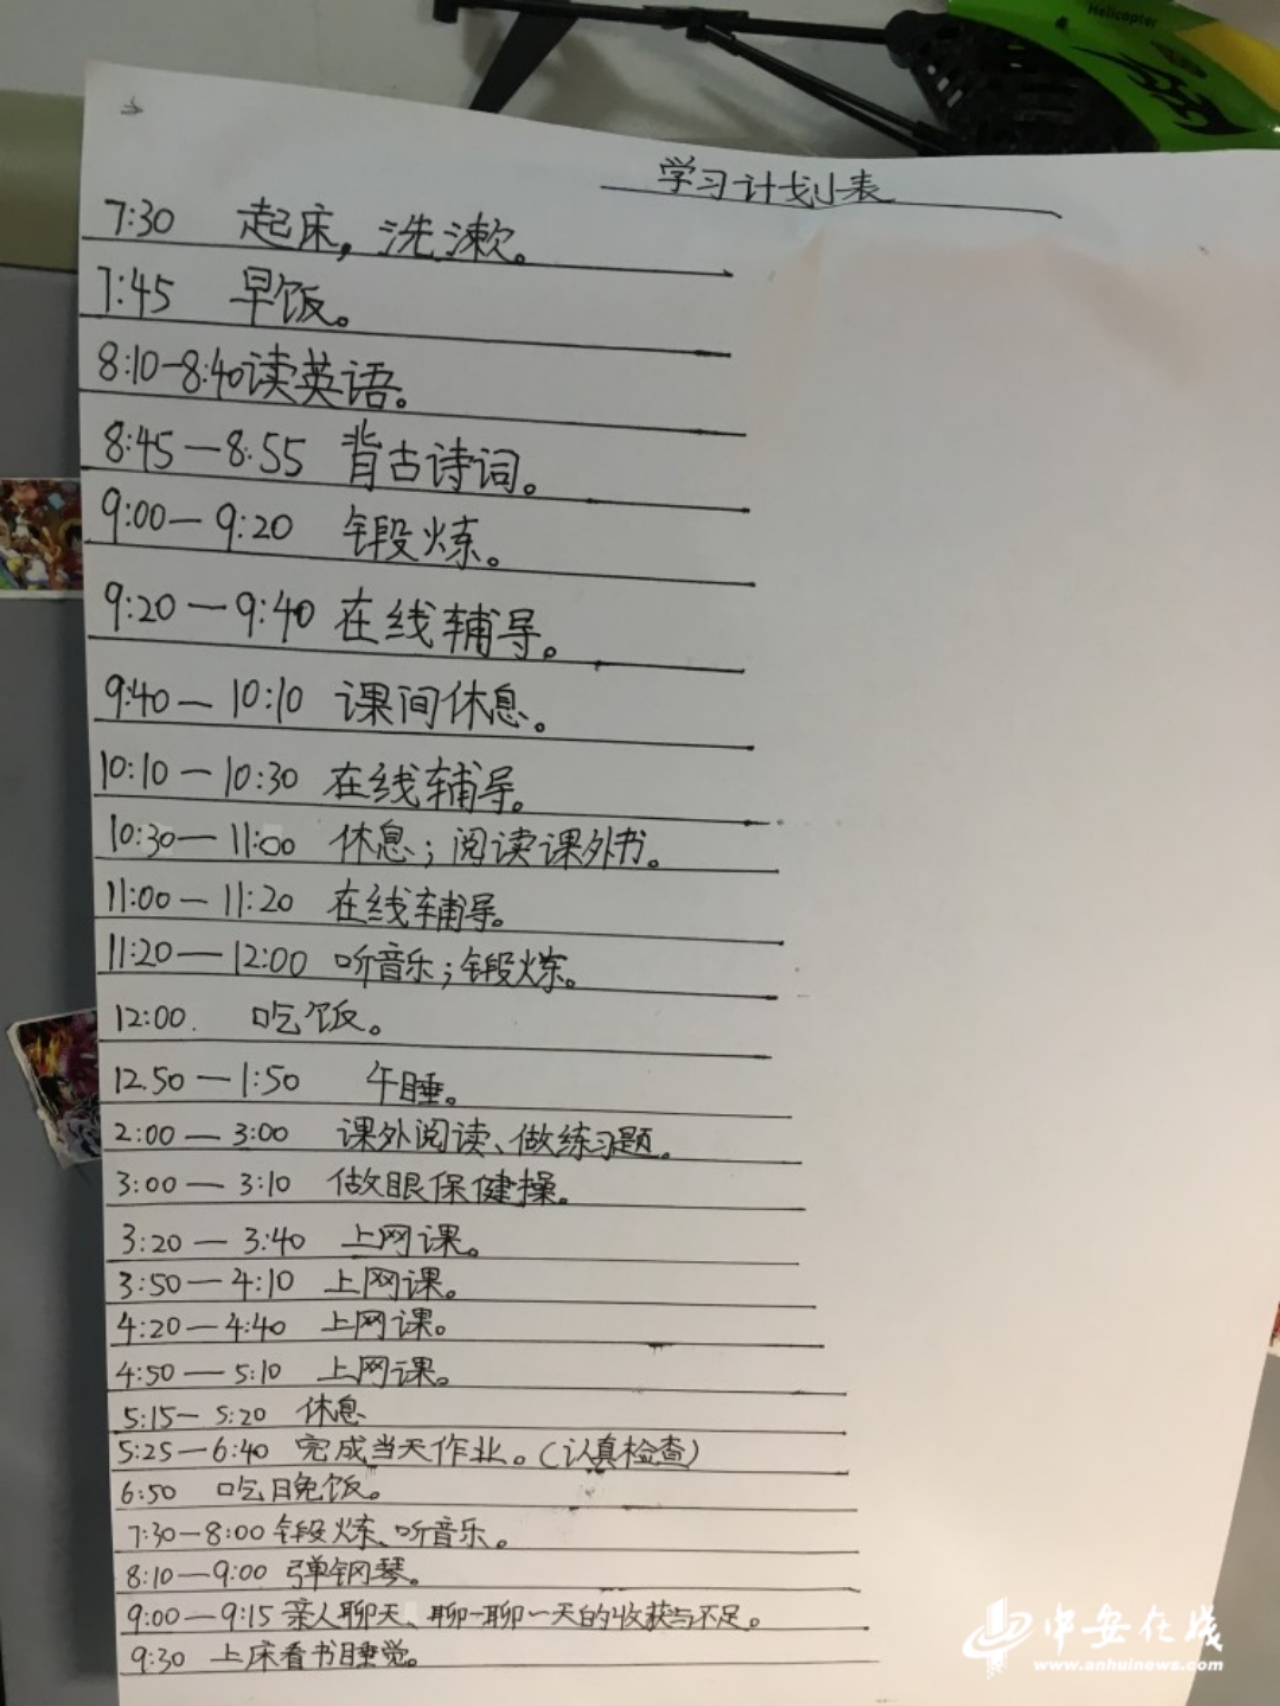 Helicopter
学习计划小表
7:30 起床，洗漱。
7:45 早饭。
8:10-8:40读英语。
8:45—8:55 背古诗词。
9:00—9:20 锻炼。
9:20—9:40 在线辅导。
9:40—10:10 课间休息。
10:10—10:30 在线辅导。
10:30—11:00 休息；阅读课外书。
11:00—11:20 在线辅导。
11:20—12:00 听音乐；锻炼。
12:00. 吃饭。
12.50—1:50 午睡。
2:00—3:00 课外阅读、做练习题。
3:00—3:10 做眼保健操。
3:20—3:40 上网课。
3:50—4:10 上网课。
4:20—4:40 上网课。
4:50—5:10 上网课。
5:15—5:20 休息
5:25—6:40 完成当天作业。(认真检查)
6:50 吃晚饭。
7:30—8:00 锻炼、听音乐。
8:10—9:00 弹钢琴。
9:00—9:15 亲人聊天、聊一聊一天的收获与不足。
9:30 上床看书睡觉。
中安在线
www.anhuinews.com